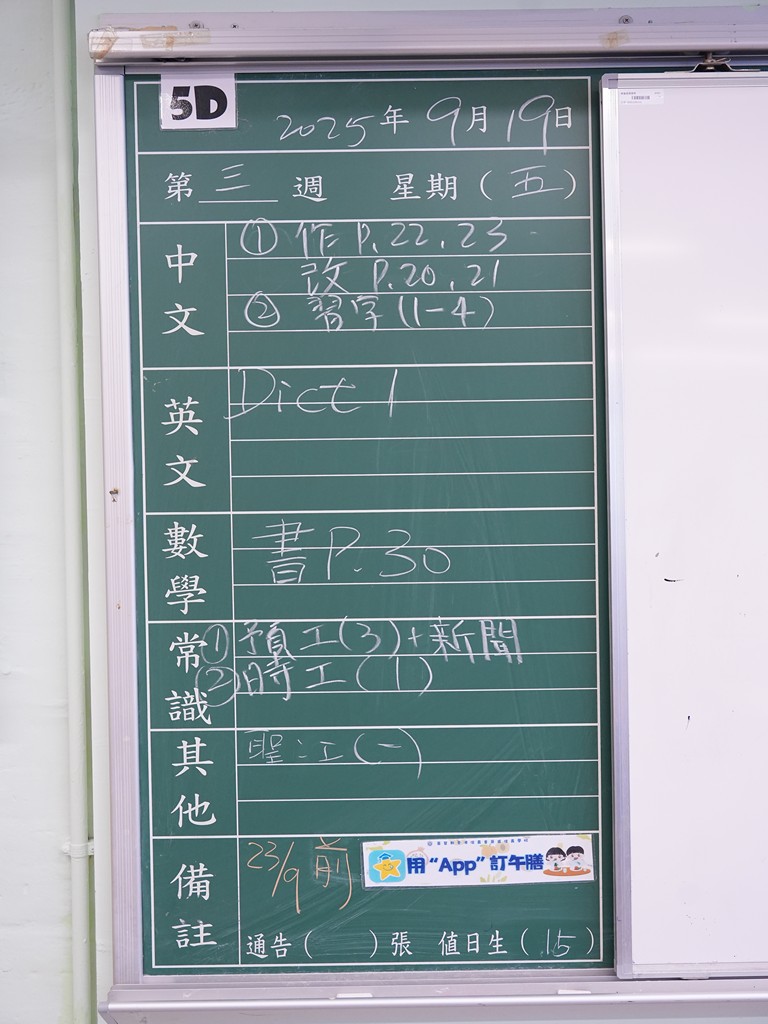 5D
2025年9月19日
第三週 星期(五)
中文
① 作 P.22,23
改 P.20,21
② 習字(1-4)
英文
Dict 1
數學
書 P.30
常識
① 預工(3)+新聞
② 時工(1)
其他
聖:工(一)
備註
23/9前
用“App”訂午膳
通告( )張 值日生(15)